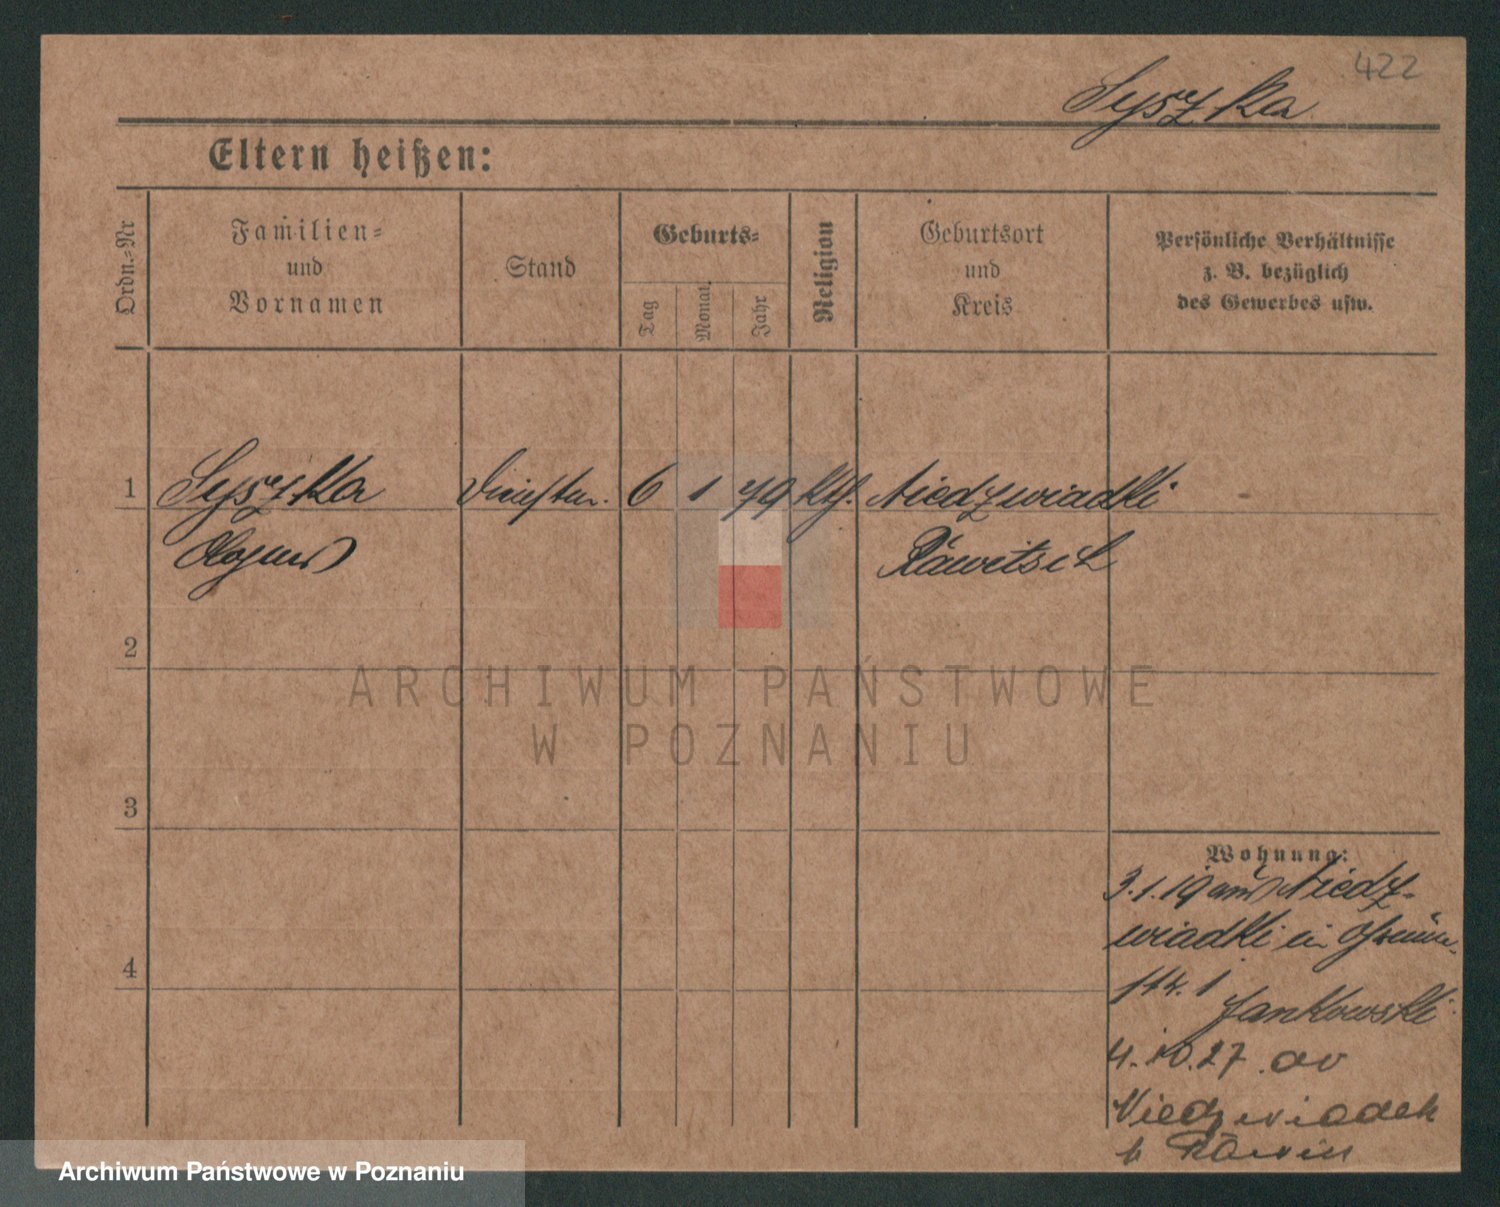 422
Syszka
Eltern heißen:
Ordn.-Nr
Familien-
und
Vornamen
Stand
Geburts-
Tag
Monat
Jahr
Religion
Geburtsort
und
Kreis
Persönliche Verhältnisse
z. B. bezüglich
des Gewerbes usw.
1 Syszka 6 1 79 kth. Niedzwiadki
Rawitsch
2
3
4
Wohnung:
3.1.19 aus Niedz-
wiadki in
1
Jankowski
4.10.27. av
Niedzwiadek
b
ARCHIWUM PAŃSTWOWE
W POZNANIU
Archiwum Państwowe w Poznaniu